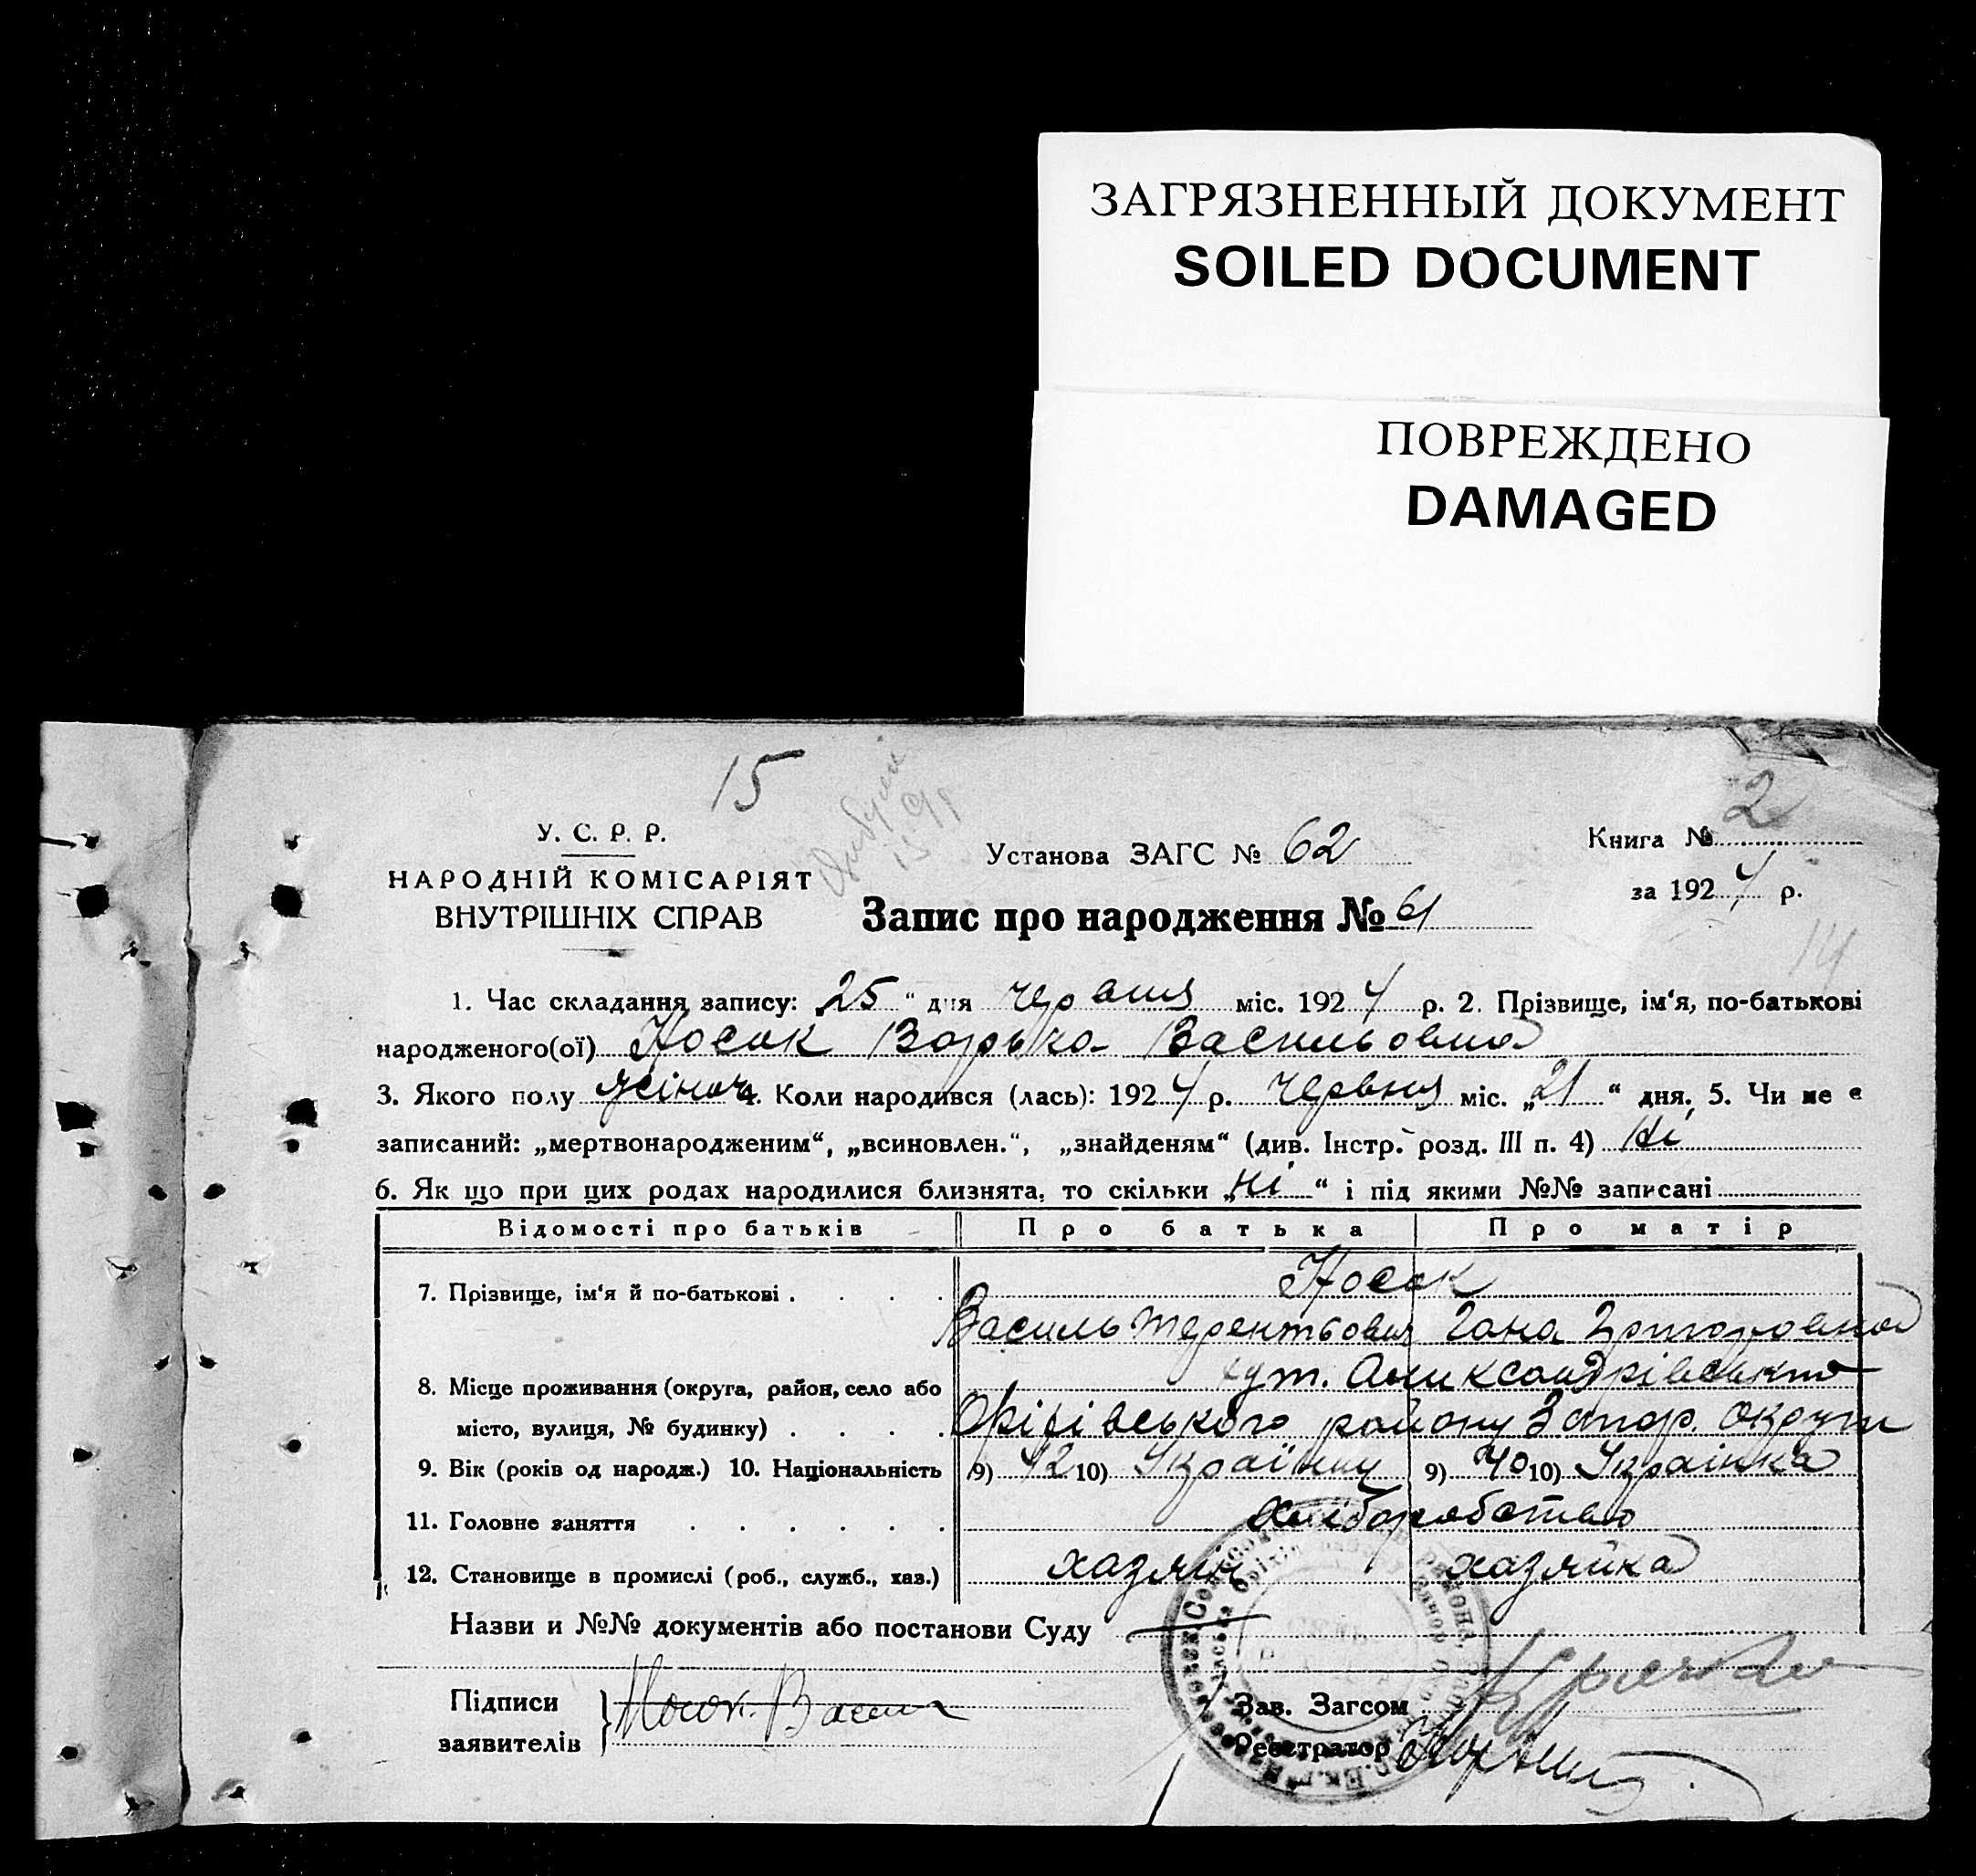 ЗАГРЯЗНЕННЫЙ ДОКУМЕНТ
SOILED DOCUMENT
ПОВРЕЖДЕНО
DAMAGED
15
У. С. Р. Р.
НАРОДНІЙ КОМІСАРІЯТ
ВНУТРІШНІХ СПРАВ
Установа ЗАГС № 62
Книга № 2
за 1924 р.
Запис про народження № 61
14
1. Час складання запису: 25 " дня червня міс. 1924 р. 2. Прізвище, ім'я, по-батькові
народженого(ої) Носок Варька Васильовна
3. Якого полу жіноч. 4. Коли народився (лась): 1924 р. червня міс. „21 “ дня. 5. Чи не є
записаний: „мертвонародженим“, „всиновлен.“, „знайденям“ (див. Інстр. розд. III п. 4) Ні
6. Як що при цих родах народилися близнята, то скільки „ні “ і під якими №№ записані
Відомості про батьків Про батька Про матір
7. Прізвище, ім'я й по-батькові . . . . Носок
Василь Терентьович Гана
8. Місце проживання (округа, район, село або хут. Аликсандрівського
місто, вулиця, № будинку) . . . . Оріхівського району Запор. округи
9. Вік (років од народж.) 10. Національність 9) 42 10) Українец 9) 40 10) Українка
11. Головне заняття . . . . . . хліборобство
12. Становище в промислі (роб., служб., хаз.) хазяїн хазяйка
Назви и №№ документів або постанови Суду —
Підписи
заявителів } Носок Васил
Зав. Загсом
Реєстратор